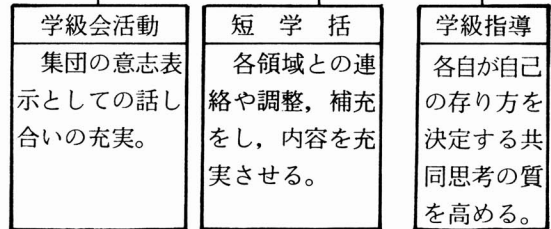 学級会活動
集団の意志表
示としての話し
合いの充実。
短学括
各領域との連
絡や調整，補充
をし，内容を充
実させる。
学級指導
各自が自己
の存り方を
決定する共
同思考の質
を高める。